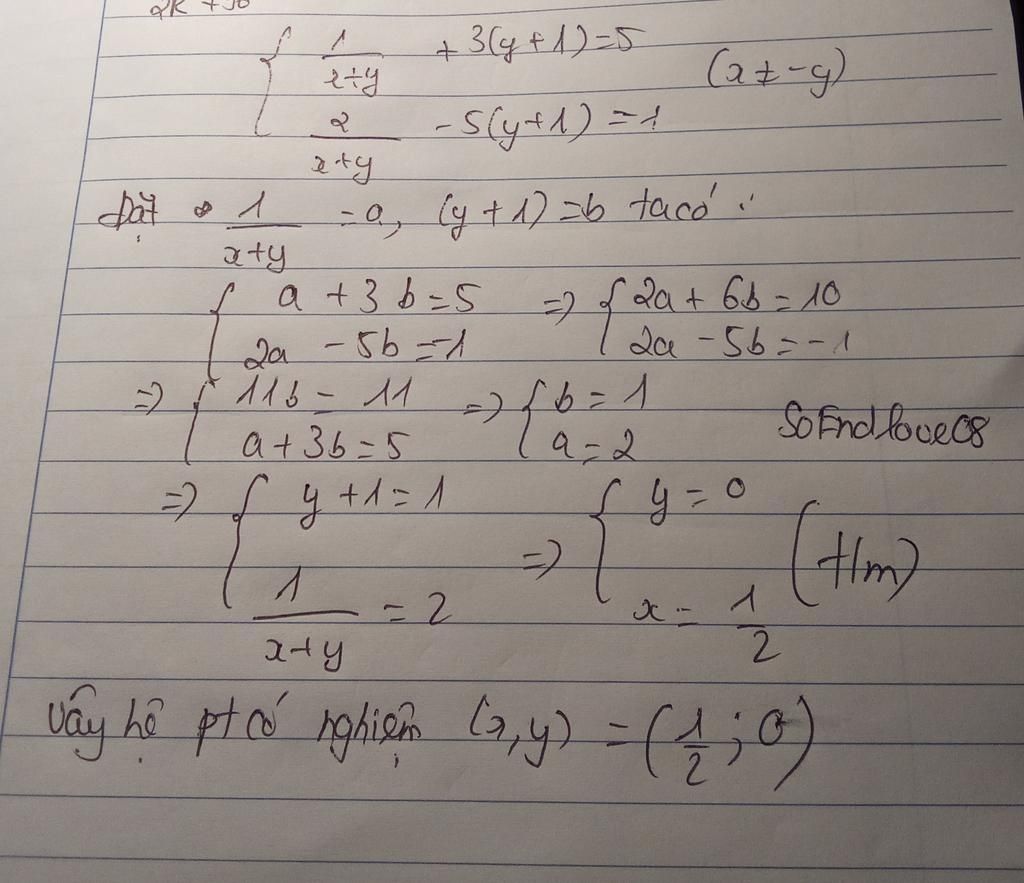 { 1/(x+y) + 3(y+1)=5
(x ≠ -y)
{ 2/(x+y) - 5(y+1) = 1
Đặt 1/(x+y) = a, (y+1)=b ta có :
{ a + 3b = 5 => { 2a + 6b = 10
{ 2a - 5b = -1 { 2a - 5b = -1
=> { 11b = 11 => { b = 1
{ a + 3b = 5 { a = 2
SoEndloveC8
=> { y + 1 = 1 => { y = 0
{ 1/(x+y) = 2 { x = 1/2 (t/m)
Vậy hệ pt có nghiệm (x,y) = (1/2; 0)